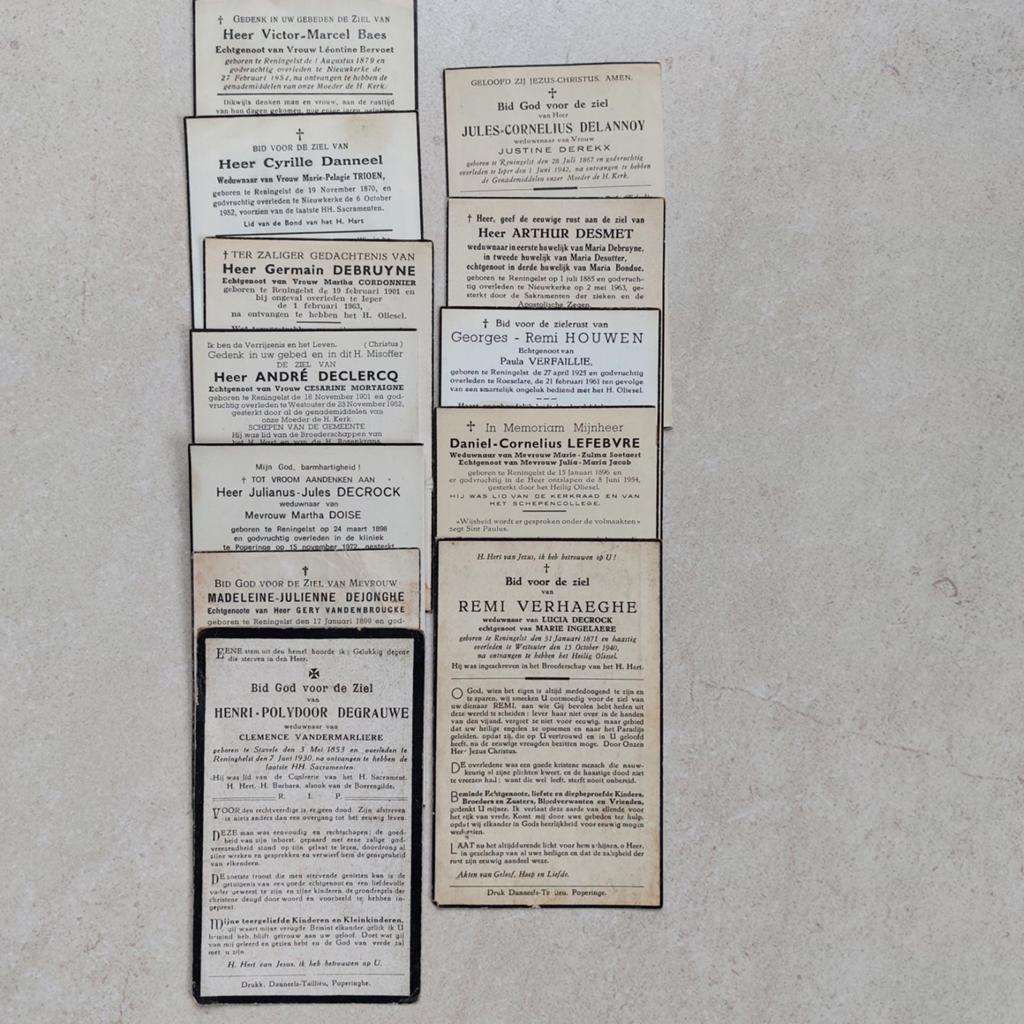 † GEDENK IN UW GEBEDEN DE ZIEL VAN
Heer Victor-Marcel Baes
Echtgenoot van Vrouw Léontine Bervoet
geboren te Reningelst de 1 Augustus 1879 en
godvruchtig overleden te Nieuwkerke de
27 Februari 1952, na ontvangen te hebben de
genademiddelen van onze Moeder de H. Kerk.
Dikwijls denken man en vrouw, aan de rusttijd
†
BID VOOR DE ZIEL VAN
Heer Cyrille Danneel
Weduwnaar van Vrouw Marie-Pelagie TRIOEN,
geboren te Reningelst de 19 November 1870, en
godvruchtig overleden te Nieuwkerke de 6 October
1952, voorzien van de laatste HH. Sacramenten.
Lid van de Bond van het H. Hart
† TER ZALIGER GEDACHTENIS VAN
Heer Germain DEBRUYNE
Echtgenoot van Vrouw Martha CORDONNIER
geboren te Reningelst de 19 februari 1901 en
bij ongeval overleden te Ieper
de 1 februari 1963,
na ontvangen te hebben het H. Oliesel.
Ik ben de Verrijzenis en het Leven. (Christus)
Gedenk in uw gebed en in dit H. Misoffer
DE ZIEL VAN
Heer ANDRÉ DECLERCQ
Echtgenoot van Vrouw CESARINE MORTAIGNE
geboren te Reningelst de 18 November 1901 en god-
vruchtig overleden te Westouter de 23 November 1952,
gesterkt door al de genademiddelen van
onze Moeder de H. Kerk.
SCHEPEN VAN DE GEMEENTE
Hij was lid van de Broederschappen van
het H. Hart en van de H. Rosenkrans.
Mijn God, barmhartigheid !
† TOT VROOM AANDENKEN AAN
Heer Julianus-Jules DECROCK
weduwnaar van
Mevrouw Martha DOISE
geboren te Reningelst op 24 maart 1898
en godvruchtig overleden in de kliniek
te Poperinge op 15 november 1972, gesterkt
†
BID GOD VOOR DE ZIEL VAN MEVROUW
MADELEINE-JULIENNE DEJONGHE
Echtgenoote van Heer GERY VANDENBROUCKE
geboren te Reningelst den 17 Januari 1899 en god-
EENE stem uit den hemel hoorde ik : Gelukkig degene
die sterven in den Heer.
✠
Bid God voor de Ziel
van
HENRI-POLYDOOR DEGRAUWE
weduwnaar van
CLEMENCE VANDERMARLIERE
geboren te Stavele den 3 Mei 1853 en overleden te
Reninghelst den 7 Juni 1930, na ontvangen te hebben de
laatste HH. Sacramenten.
Hij was lid van de Confrerie van het H. Sacrament,
H. Hert, H. Barbara, alsook van de Boerengilde.
R. I. P.
VOOR den rechtveerdige is er geen dood. Zijn afsterven
is niets anders dan een overgang tot het eeuwig leven.
DEZE man was eenvoudig en rechtschapen; de goed-
heid van zijn inborst, gepaard met eene zalige god-
vreezendheid stond op zijn gelaat te lezen, doordrong al
zijne werken en gesprekken en verwierf hem de genegenheid
van elkendeen.
DE zoetste troost die men stervende genieten kan is de
getuigenis van een goede echtgenoot en een liefdevolle
vader geweest te zijn en zijne kinderen de grondregels der
christene deugd door woord én voorbeeld te hebben in-
geprent.
Mijne teergeliefde Kinderen en Kleinkinderen,
gij waart mijne vreugde Bemint elkander, gelijk ik U
bemind heb, blijft getrouw aan uw geloof. Doet wat gij
van mij geleerd en gezien hebt en de God van vrede zal
met u zijn
H. Hert van Jezus, ik heb betrouwen op U.
Drukk. Danneels-Taillieu, Poperinghe.
GELOOFD ZIJ JEZUS-CHRISTUS. AMEN.
†
Bid God voor de ziel
van Heer
JULES-CORNELIUS DELANNOY
weduwnaar van Vrouw
JUSTINE DEREKX
geboren te Reningelst den 28 Juli 1867 en godvruchtig
overleden te Ieper den 1 Juni 1942, na ontvangen te hebben
de Genademiddelen onzer Moeder de H. Kerk.
† Heer, geef de eeuwige rust aan de ziel van
Heer ARTHUR DESMET
weduwnaar in eerste huwelijk van Maria Debruyne,
in tweede huwelijk van Maria Desutter,
echtgenoot in derde huwelijk van Maria Bondue,
geboren te Reningelst op 1 juli 1885 en godvruch-
tig overleden te Nieuwkerke op 2 mei 1963, ge-
sterkt door de Sakramenten der zieken en de
Apostolische Zegen.
† Bid voor de zielerust van
Georges - Remi HOUWEN
Echtgenoot van
Paula VERFAILLIE,
geboren te Reningelst de 27 april 1925 en godvruchtig
overleden te Roeselare, de 21 februari 1961 ten gevolge
van een smartelijk ongeluk bediend met het H. Oliesel.
† In Memoriam Mijnheer
Daniel-Cornelius LEFEBVRE
Weduwnaar van Mevrouw Marie-Zulma Soetaert
Echtgenoot van Mevrouw Julia-Maria Jacob
geboren te Reningelst de 15 Januari 1896 en
godvruchtig in de Heer ontslapen de 8 Juni 1954,
gesterkt door het Heilig Oliesel.
HIJ WAS LID VAN DE KERKRAAD EN VAN
HET SCHEPENCOLLEGE.
«Wijsheid wordt er gesproken onder de volmaakten»
zegt Sint Paulus.
H. Hert van Jezus, ik heb betrouwen op U !
†
Bid voor de ziel
van
REMI VERHAEGHE
weduwnaar van LUCIA DECROCK
echtgenoot van MARIE INGELAERE
geboren te Reningelst den 31 Januari 1871 en haastig
overleden te Westouter den 15 October 1940,
na ontvangen te hebben het Heilig Oliesel.
Hij was ingeschreven in het Broederschap van het H. Hert.
O God, wien het eigen is altijd mededoogend te zijn en
te sparen, wij smeeken U ootmoedig voor de ziel van
uw dienaar REMI, aan wie Gij bevolen hebt heden uit
deze wereld te scheiden : lever haar niet over in de handen
van den vijand, vergeet ze niet voor eeuwig, maar gebied
dat uw heilige engelen ze opnemen en naar het Paradijs
geleiden, opdat zij, die op U vertrouwd en in U geloofd
heeft, nu de eeuwige vreugden bezitten moge. Door Onzen
Heer Jezus Christus.
DE overledene was een goede kristene mensch die nauw-
keurig al zijne plichten kweet, en de haastige dood niet
te vreezen had : want die wel leeft, sterft nooit onbereid.
Beminde Echtgenoote, liefste en diepbeproefde Kinders,
Broeders en Zusters, Bloedverwanten en Vrienden,
gedenkt U mijner. Ik verlaat deze aarde van ellende voor
het rijk van vrede. Komt mij door uwe gebeden ter hulp,
opdat wij elkander in Gods heerlijkheid voor eeuwig mogen
wedrzien.
LAAT nu het altijddurende licht voor hem schijnen, o Heer,
in gezelschap van al uwe heiligen en dat de zaligheid der
rust zijn eeuwig aandeel weze.
Akten van Geloof, Hoop en Liefde.
Druk Danneels-Ta lieu, Poperinge.